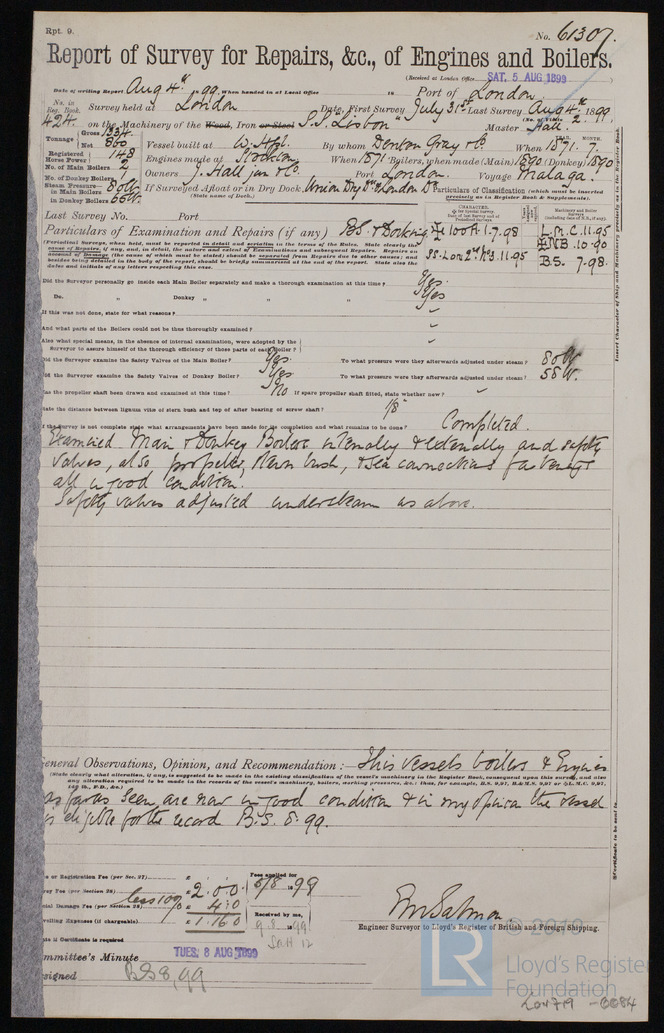 Rpt. 9.
No. 61307.
Report of Survey for Repairs, &c., of Engines and Boilers.
(Received at London Office SAT. 5 AUG. 1899
Date of writing Report Aug 4th 1899. When handed in at Local Office 18 Port of London
No. in Reg. Book. Survey held at London Date, First Survey July 31st Last Survey Aug 4th 1899.
424. on the Machinery of the Wood, Iron or Steel S.S. "Lisbon" (No. of Visits 2. Master Hall.
Tonnage Gross 1334 Net 860 Vessel built at W. Htpl. By whom Denton Gray & Co. When 1871. 7.
Registered Horse Power 148 Engines made at Stockton When 1871 Boilers, when made (Main) 1890 (Donkey) 1890
No. of Main Boilers 2 Owners J. Hall jun & Co. Port London. Voyage Malaga.
No. of Donkey Boilers
Steam Pressure in Main Boilers 80 lb. If Surveyed Afloat or in Dry Dock Union Dry Dk & London Dk
(State name of Dock.)
in Donkey Boilers 55 lb.
Particulars of Classification (which must be inserted precisely as in Register Book & Supplements).
Last Survey No. Port
Particulars of Examination and Repairs (if any) B.S. & Docking
100 A 1. 7.98
SS. Lon. 2nd No 3. 11.95
L.M.C. 11.95
NB. 10.90
B.S. 7.98.
Insert Character of Ship and Machinery precisely as in the Register Book.
(Periodical Surveys, when held, must be reported in detail and seriatim in the terms of the Rules. State clearly the
cause of Repairs, if any, and, in detail, the nature and extent of Examinations and subsequent Repairs. Repairs on
account of Damage (the cause of which must be stated) should be separated from Repairs due to other causes; and
besides being detailed in the body of the report, should be briefly summarised at the end of the report. State also the
dates and initials of any letters respecting this case.
Did the Surveyor personally go inside each Main Boiler separately and make a thorough examination at this time? Yes.
Do. Donkey " " " " Yes
If this was not done, state for what reasons? -
And what parts of the Boilers could not be thus thoroughly examined? -
Also what special means, in the absence of internal examination, were adopted by the
Surveyor to assure himself of the thorough efficiency of those parts of each Boiler? -
Did the Surveyor examine the Safety Valves of the Main Boiler? Yes. To what pressure were they afterwards adjusted under steam? 80 lb.
Did the Surveyor examine the Safety Valves of Donkey Boiler? Yes To what pressure were they afterwards adjusted under steam? 55 lb.
Was the propeller shaft drawn and examined at this time? No If spare propeller shaft fitted, state whether new? -
State the distance between lignum vitæ of stern bush and top of after bearing of screw shaft? 1/8"
If the survey is not complete state what arrangements have been made for its completion and what remains to be done? Completed.
Examined Main & Donkey Boilers internally & externally and safety
valves, also propeller, stern bush, & sea connections fastenings
all in good condition.
Safety valves adjusted under steam as above.
General Observations, Opinion, and Recommendation:— This vessels boilers & Engines
(State clearly what alteration, if any, is suggested to be made in the existing classification of the vessel's machinery in the Register Book, consequent upon this survey, and also
any alteration required to be made in the records of the vessel's machinery, boilers, working pressures, &c.: thus, for example, B.S. 9,97, B.&M.S. 9,97 or L.M.C. 9,97,
as far as seen are now in good condition & in my opinion the vessel
is eligible for the record B.S. 8.99.
Certificate to be sent to
or Registration Fee (per Sec. 27) £ Fees applied for
Fee (per Section 28) £ 2.0.0 5/8 1899
less 10%
Damage Fee (per Section 28) £ 4.0 Received by me,
Travelling Expenses (if chargeable) £ 1.16.0 9.8. 1899
State if Certificate is required
E W Salmon
Engineer Surveyor to Lloyd's Register of British and Foreign Shipping.
Committee's Minute TUES. 8 AUG. 1899
Assigned BS 8,99
LR
© 2019
Lloyd's Register
Foundation
LON719-0084